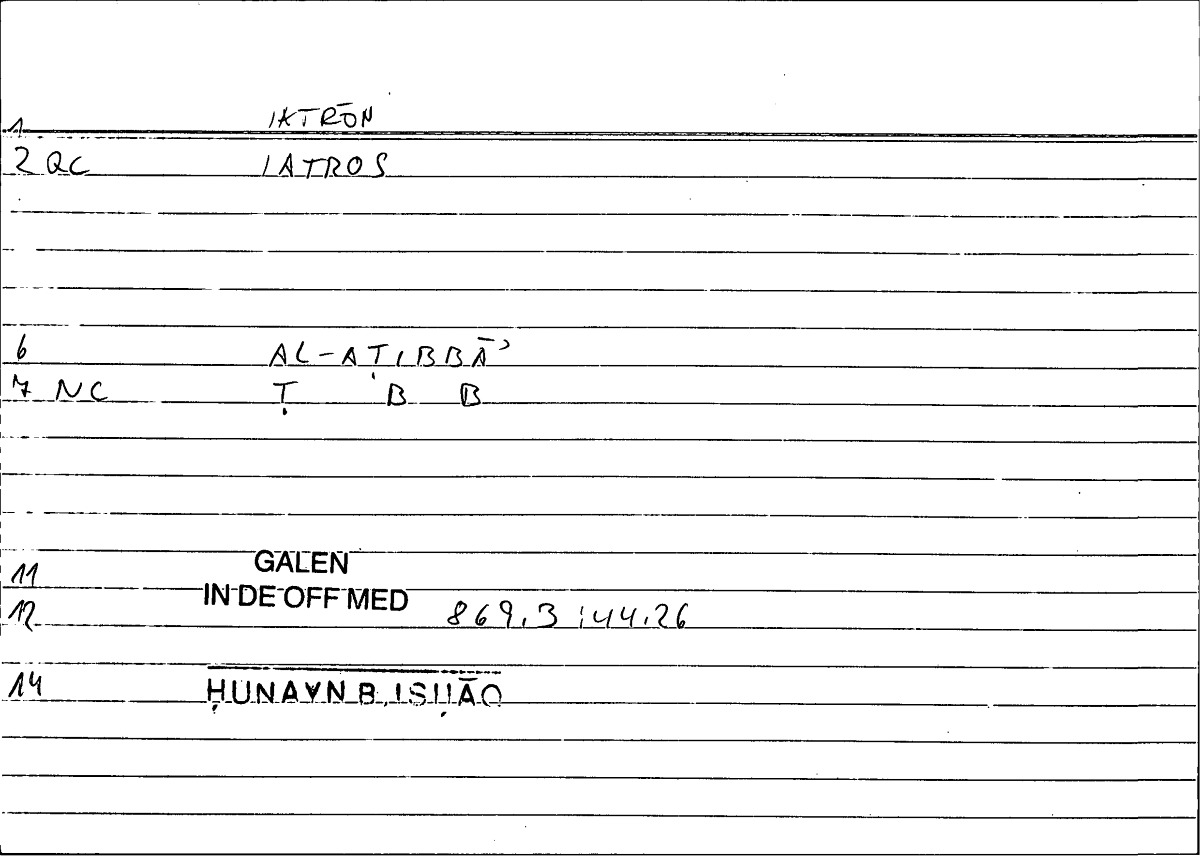 1 IATRŌN
2 QC IATROS
6 AL-AṬIBBĀʾ
7 NC Ṭ B B
11 GALEN
IN DE OFF MED
12 869.3 :44.26
14 ḤUNAYN B. ISḤĀQ